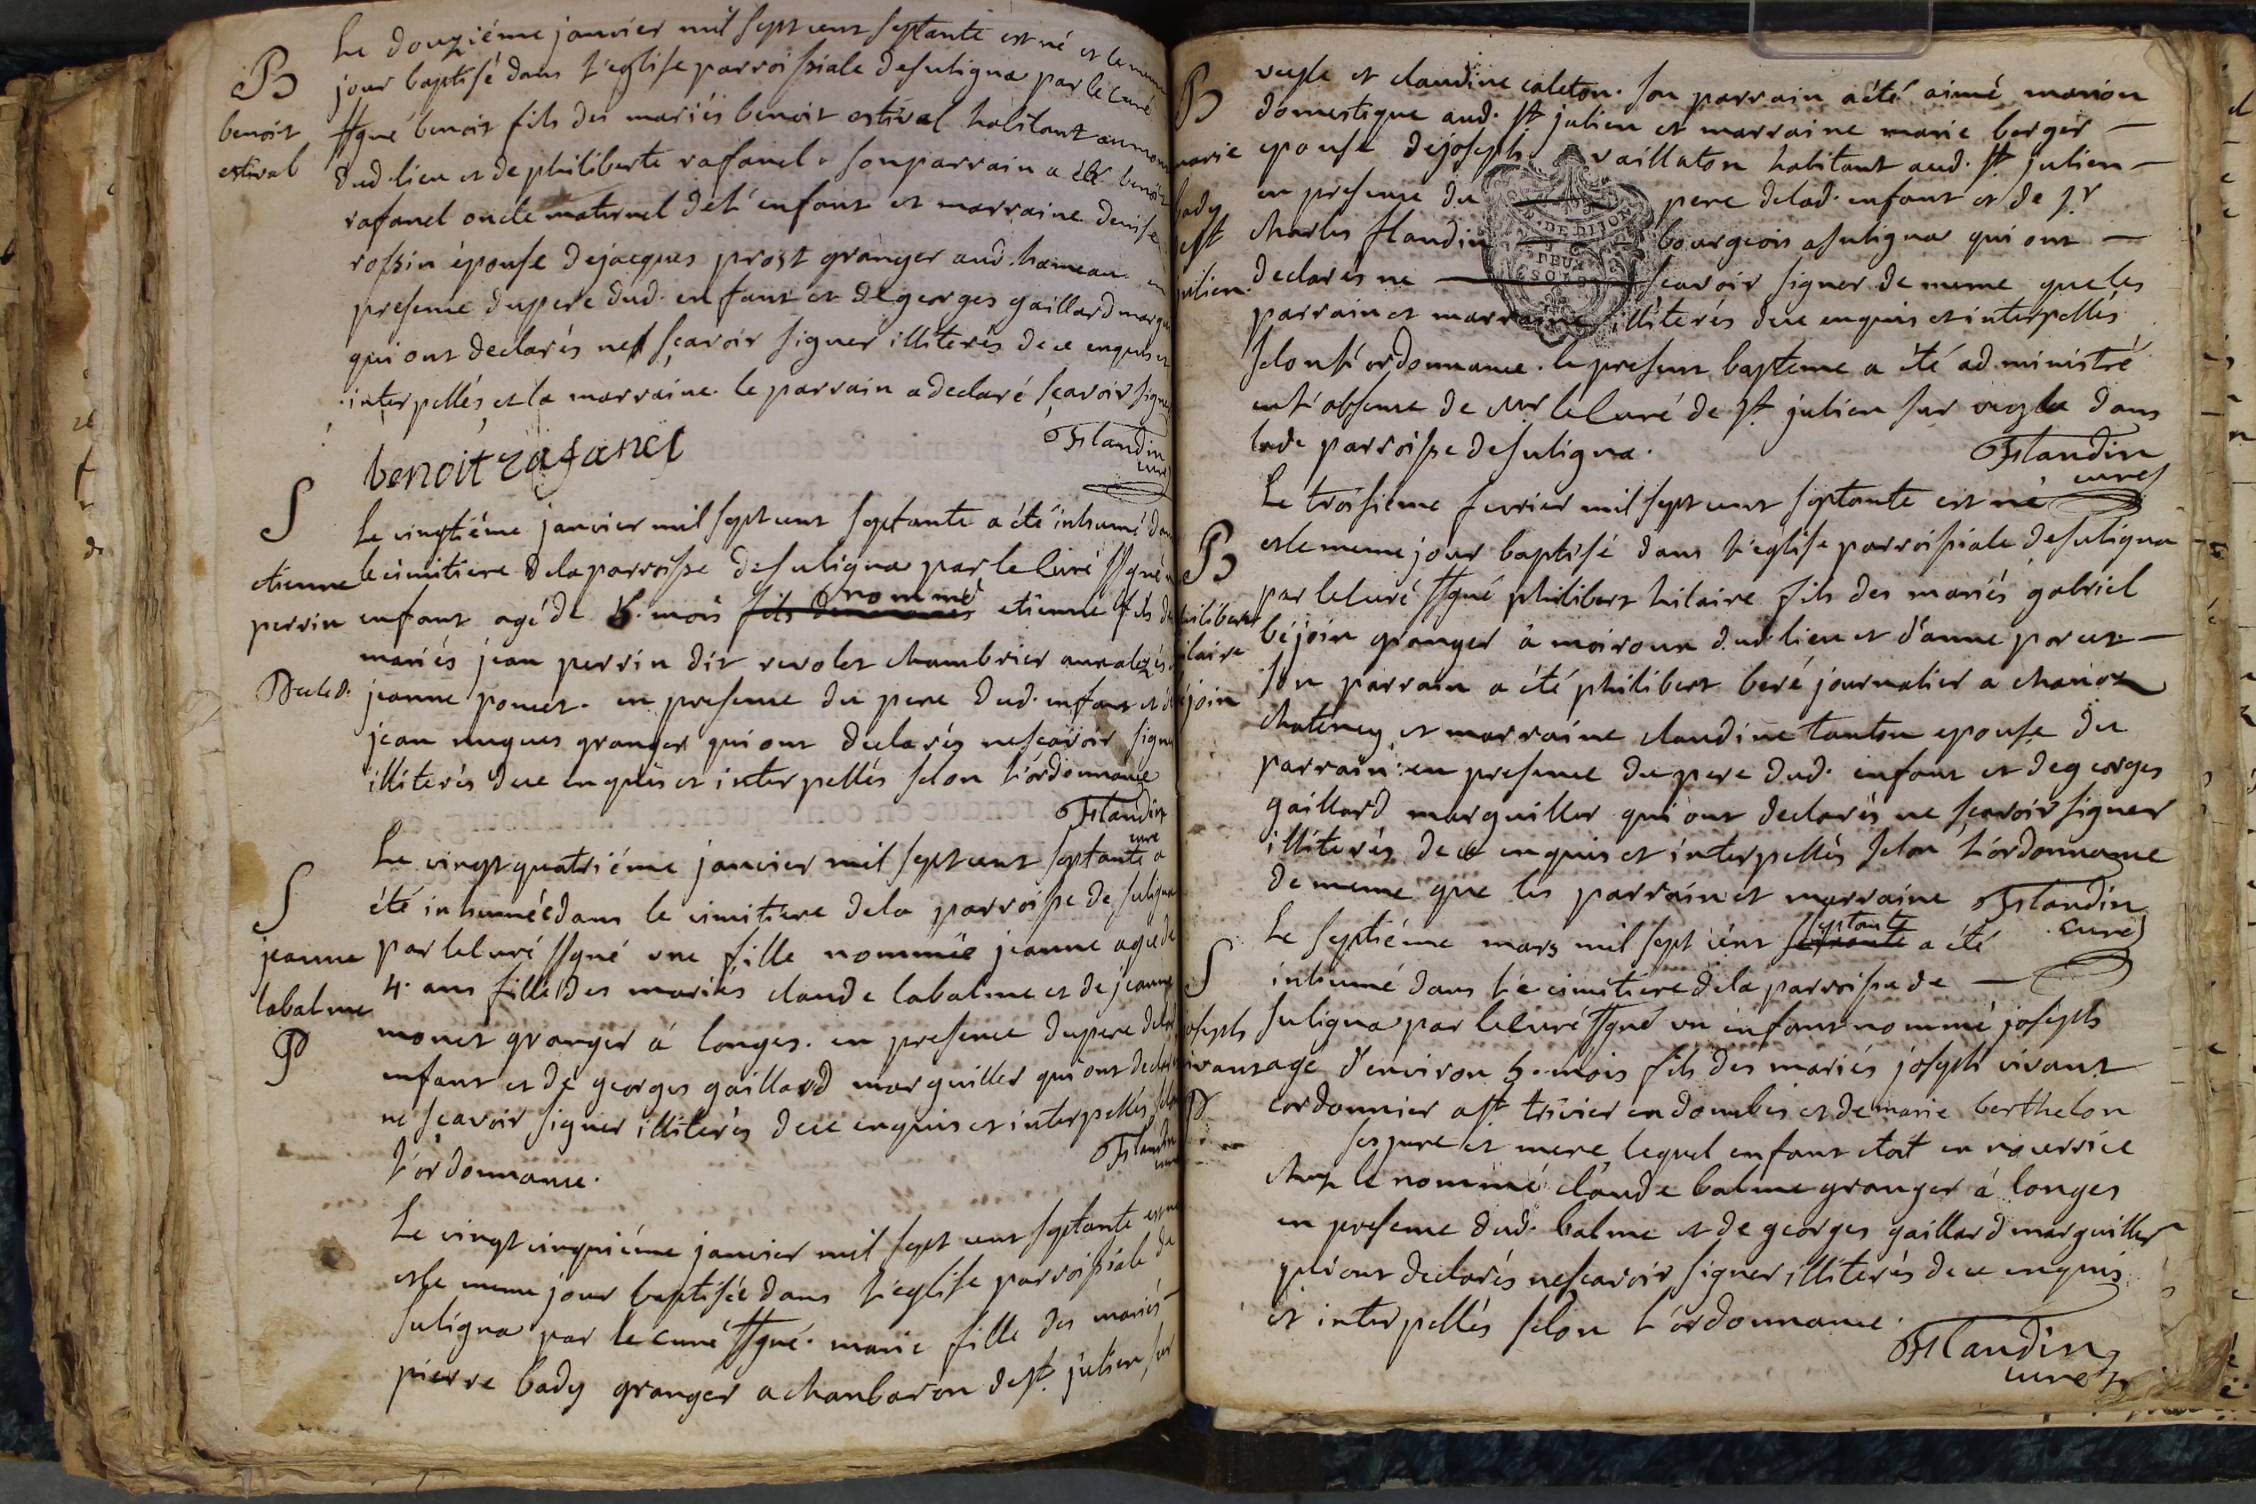 Le douziéme janvier mil sept cent septante est né et le meme
B
jour baptisé dans l'eglise parroissiale de suligna par le curé
benoit
ssgné benoit fils des mariés benoit estival habitant au
estival
dud. lieu et de philiberte rafanel. son parrain a été benoit
rafanel oncle maternel de l'enfant et marraine denise
rossin épouse de jacques prost granger aud. hameau en
presence du pere dud. enfant et de georges gaillard
qui ont declarés ne sçavoir signer illiterés de ce enquis et
interpellés, et la marraine. le parrain a declaré sçavoir signer
benoit rafanel
Flandin
curé
S
Le vingtiéme janvier mil sept cent septante a été inhumé dans
etienne
le cimitiere de la parroisse de suligna par le curé ssgné
nommé
perrin
enfant agé de 5. mois fils de mariés etienne fils de
mariés jean perrin dit revolet chambrier
Decled.
jeanne poncet. en presence du pere dud. enfant et de
jean nugues granger qui ont declarés ne scavoir signer
illiterés de ce enquis et interpellés selon l'ordonnance
Flandin
curé
Le vingt quatriéme janvier mil sept cent septante a
S
été inhumée dans le cimitiere de la parroisse de suligna
jeanne
par le curé ssgné une fille nommée jeanne agée de
labalme
4. ans fille des mariés claude labalme et de jeanne
P
monet granger á longes. en presence du pere de lad.
enfant et de georges gaillard marguiller qui ont declarés
ne sçavoir signer illiterés de ce enquis et interpellés selon
l'ordonnance.
Flandin
curé
Le vingt cinquiéme janvier mil sept cent septante est né
et le meme jour baptisée dans l'eglise parroissiale de
suligna par le curé ssgné. marie fille des mariés
pierre bady granger a chanbaron de st. julien sur
B
vesle et claudine caleton. son parrain a été aimé marion
domestique aud. st julien et marraine marie berger
marie
epouse de joseph vaillaton habitant aud. st julien
bady
en presence du pere de lad. enfant et de sr
de st
charles flandin bourgeois a suligna qui ont
julien.
declarés ne scavoir signer de meme que les
parrain et marraine illiterés de ce enquis et interpellés
selon l'ordonnance. le present bapteme a été administré
en l'absence de mr le curé de st. julien sur vesle dans
lade parroisse de suligna.
Flandin
curé
Le troisieme fevrier mil sept cent septante est né
B
et le meme jour baptisé dans l'eglise parroissiale de suligna
philibert
par le curé ssgné philibert hilaire fils des mariés gabriel
hilaire
béjoin granger á moiroux dud. lieu et d'anne poncet
béjoin
son parrain a été philibert beré journalier a chanoz
chatenay et marraine claudine tanton epouse du
parrain: en presence du pere dud. enfant et de georges
gaillard marguiller qui ont declarés ne sçavoir signer
illiterés de ce enquis et interpellés selon l'ordonnance
de meme que les parrain et marraine
Flandin
curé
septante
Le septiéme mars mil sept cent septante a été
S
inhumé dans le cimitiere de la parroisse de
joseph
suligna par le curé ssgné un enfant nommé joseph
vivant
agé d'environ 5. mois fils des mariés joseph vivant
P
cordonnier a st. trivier en dombes et de marie berthelon
ses pere et mere, lequel enfant etoit en nourrice
chez le nommé claude balme granger á longes
en presence dud. balme et de georges gaillard marguiller
qui ont declarés ne scavoir signer illiterés de ce enquis
et interpellés selon l'ordonnance.
Flandin
curé